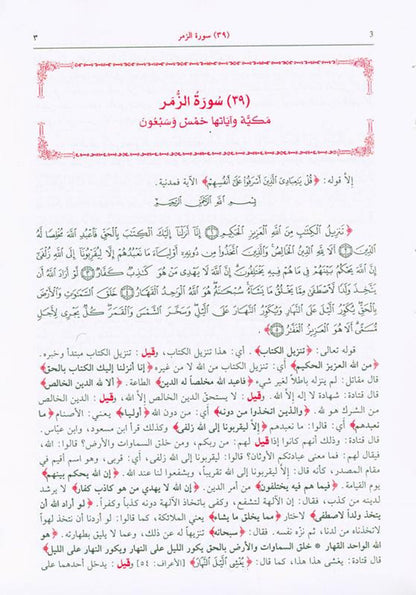 3 (٣٩) سورة الزمر ٣
(٣٩) سُورَةُ الزُّمَرِ
مَكيَّة وآيَاتها خَمْسٌ وَسَبْعُونَ
إلاّ قوله: ﴿قُلْ يَعِبَادِىَ الَّذِينَ أَسْرَفُوا عَلَىٰ أَنفُسِهِمْ﴾ الآية فمدنية.
بِسْمِ اللَّهِ الرَّحْمَٰنِ الرَّحِيمِ
﴿تَنزِيلُ الْكِتَٰبِ مِنَ اللَّهِ الْعَزِيزِ الْحَكِيمِ ۝ إِنَّا أَنزَلْنَا إِلَيْكَ الْكِتَٰبَ بِالْحَقِّ فَاعْبُدِ اللَّهَ مُخْلِصًا لَّهُ
الدِّينَ ۝ أَلَا لِلَّهِ الدِّينُ الْخَالِصُ وَالَّذِينَ اتَّخَذُوا مِن دُونِهِ أَوْلِيَاءَ مَا نَعْبُدُهُمْ إِلَّا لِيُقَرِّبُونَا إِلَى اللَّهِ زُلْفَىٰ
إِنَّ اللَّهَ يَحْكُمُ بَيْنَهُمْ فِي مَا هُمْ فِيهِ يَخْتَلِفُونَ إِنَّ اللَّهَ لَا يَهْدِي مَنْ هُوَ كَٰذِبٌ كَفَّارٌ ۝ لَّوْ أَرَادَ اللَّهُ أَن
يَتَّخِذَ وَلَدًا لَّاصْطَفَىٰ مِمَّا يَخْلُقُ مَا يَشَاءُ سُبْحَٰنَهُ هُوَ اللَّهُ الْوَٰحِدُ الْقَهَّارُ ۝ خَلَقَ السَّمَٰوَٰتِ وَالْأَرْضَ
بِالْحَقِّ يُكَوِّرُ اللَّيْلَ عَلَى النَّهَارِ وَيُكَوِّرُ النَّهَارَ عَلَى اللَّيْلِ وَسَخَّرَ الشَّمْسَ وَالْقَمَرَ كُلٌّ يَجْرِي لِأَجَلٍ
مُّسَمًّى أَلَا هُوَ الْعَزِيزُ الْغَفَّٰرُ ۝﴾
قوله تعالى: ﴿تنزيل الكتاب﴾. أي: هذا تنزيل الكتاب، وقيل: تنزيل الكتاب مبتدأ وخبره.
﴿من الله العزيز الحكيم﴾ أي: تنزيل الكتاب من الله لا من غيره ﴿إنا أنزلنا إليك الكتاب بالحق﴾
قال مقاتل: لم ينزله باطلاً لغير شيء ﴿فاعبد الله مخلصاً له الدين﴾ الطاعة. ﴿ألا لله الدين الخالص﴾
قال قتادة: شهادة لا إله إلاّ الله. وقيل: لا يستحق الدين الخالص إلاّ الله، وقيل: الدين الخالص
من الشرك هو لله. ﴿والذين اتخذوا من دونه﴾ أي: من دون الله ﴿أولياء﴾ يعني: الأصنام ﴿ما
نعبدهم﴾ أي قالوا: ما نعبدهم ﴿إلا ليقربونا إلى الله زلفى﴾ وكذلك قرأ ابن مسعود، وابن عبّاس.
قال قتادة: وذلك أنهم كانوا إذا قيل لهم: من ربكم، ومن خلق السماوات والأرض؟ قالوا: الله،
فيقال لهم: فما معنى عبادتكم الأوثان؟ قالوا: ليقربونا إلى الله زلفى، أي: قربى، وهو اسم أقيم في
مقام المصدر، كأنه قال: إلاّ ليقربونا إلى الله تقريباً، ويشفعوا لنا عند الله. ﴿إن الله يحكم بينهم﴾
يوم القيامة. ﴿فيما هم فيه يختلفون﴾ من أمر الدين. ﴿إن الله لا يهدي من هو كاذب كفار﴾ لا يرشد
لدينه من كذب، فقال: إن الآلهة لتشفع، وكفى باتخاذ الآلهة دونه كذباً وكفراً. ﴿لو أراد الله أن
يتخذ ولداً لاصطفى﴾ لاختار ﴿مما يخلق ما يشاء﴾ يعني: الملائكة، كما قالوا: لو أردنا أن نتخذ لهواً
لاتخذناه من لدنا، ثم نزّه نفسه. فقال: ﴿سبحانه﴾ تنزيهاً له عن ذلك، وعما لا يليق بطهارته. ﴿هو
الله الواحد القهار * خلق السماوات والأرض بالحق يكور الليل على النهار ويكور النهار على الليل﴾
قال قتادة: يغشى هذا هذا، كما قال: ﴿يُغْشِي الَّيْلَ النَّهَارَ﴾ [الأعراف: ٥٤] وقيل: يدخل أحدهما على